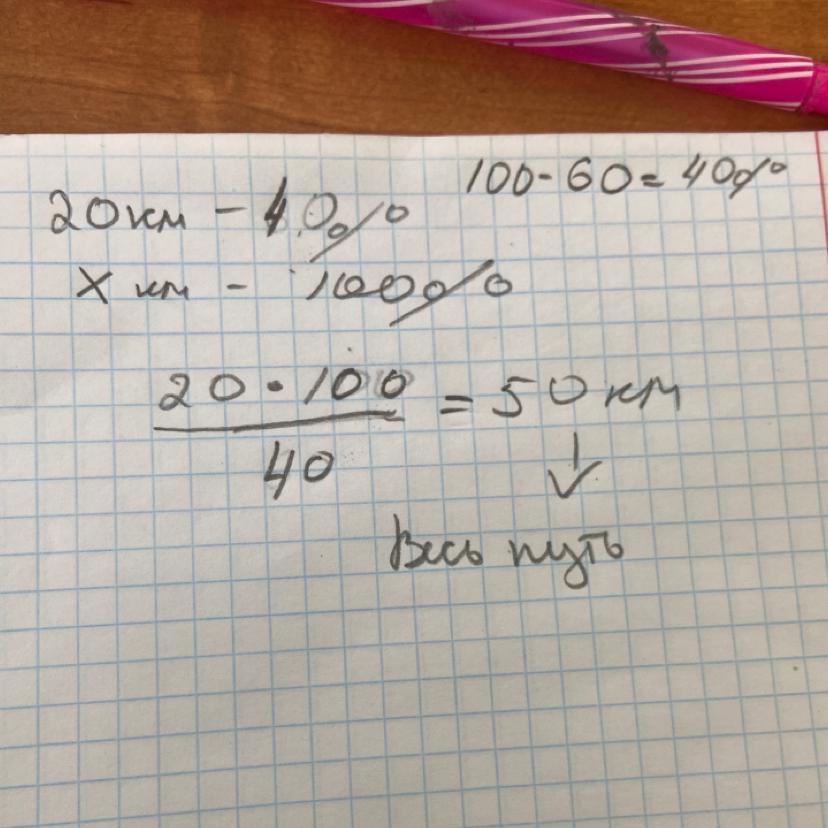 100 - 60 = 40%
20 км - 40%
X км - 100%
20 · 100
40
= 50 км
↓
Весь путь